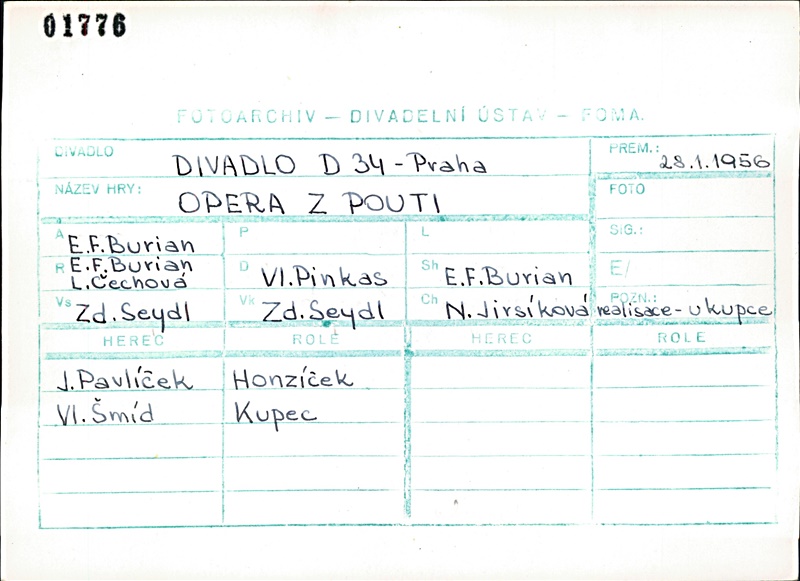 01776
FOTOARCHIV – DIVADELNÍ ÚSTAV – FOMA.
DIVADLO DIVADLO D 34 - Praha PREM.: 28.1.1956
NÁZEV HRY: OPERA Z POUTI FOTO
A E.F.Burian P L SIG.:
R E.F.Burian L.Čechová D Vl.Pinkas Sh E.F.Burian E/
Vs Zd.Seydl Vk Zd.Seydl Ch N.Jirsíková POZN.: realisace - u kupce
HEREC ROLE HEREC ROLE
J.Pavlíček Honzíček
Vl.Šmíd Kupec